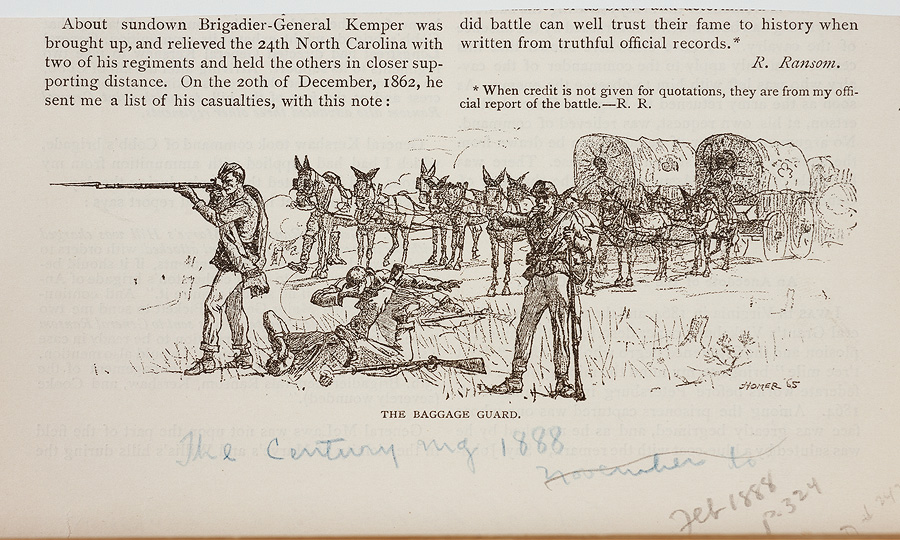 About sundown Brigadier-General Kemper was
brought up, and relieved the 24th North Carolina with
two of his regiments and held the others in closer sup-
porting distance. On the 20th of December, 1862, he
sent me a list of his casualties, with this note:
did battle can well trust their fame to history when
written from truthful official records.*
R. Ransom.
* When credit is not given for quotations, they are from my offi-
cial report of the battle.—R. R.
HOMER '65
THE BAGGAGE GUARD.
The Century mg 1888
November to
Feb 1888
p. 324